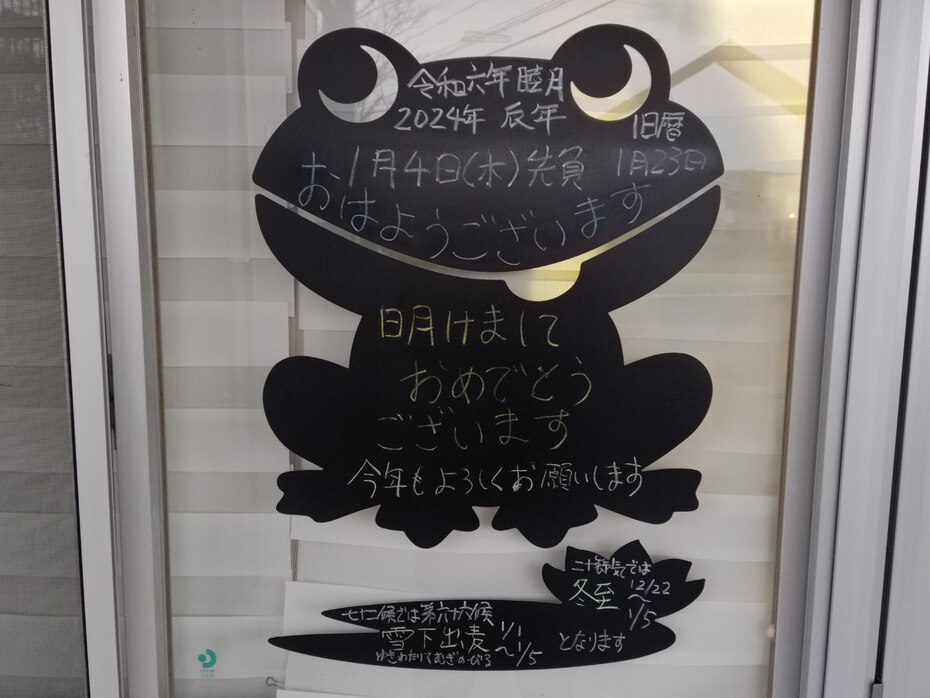 令和六年 睦月
2024年 辰年
旧暦
1月4日(木)先負 1月23日
おはようございます
明けまして
おめでとう
ございます
今年もよろしくお願いします
二十四節気では
冬至 12/22
〜
1/5
七十二候では第六十六候
雪下出麦 1/1
〜1/5
ゆきわたりてむぎのびる
となります